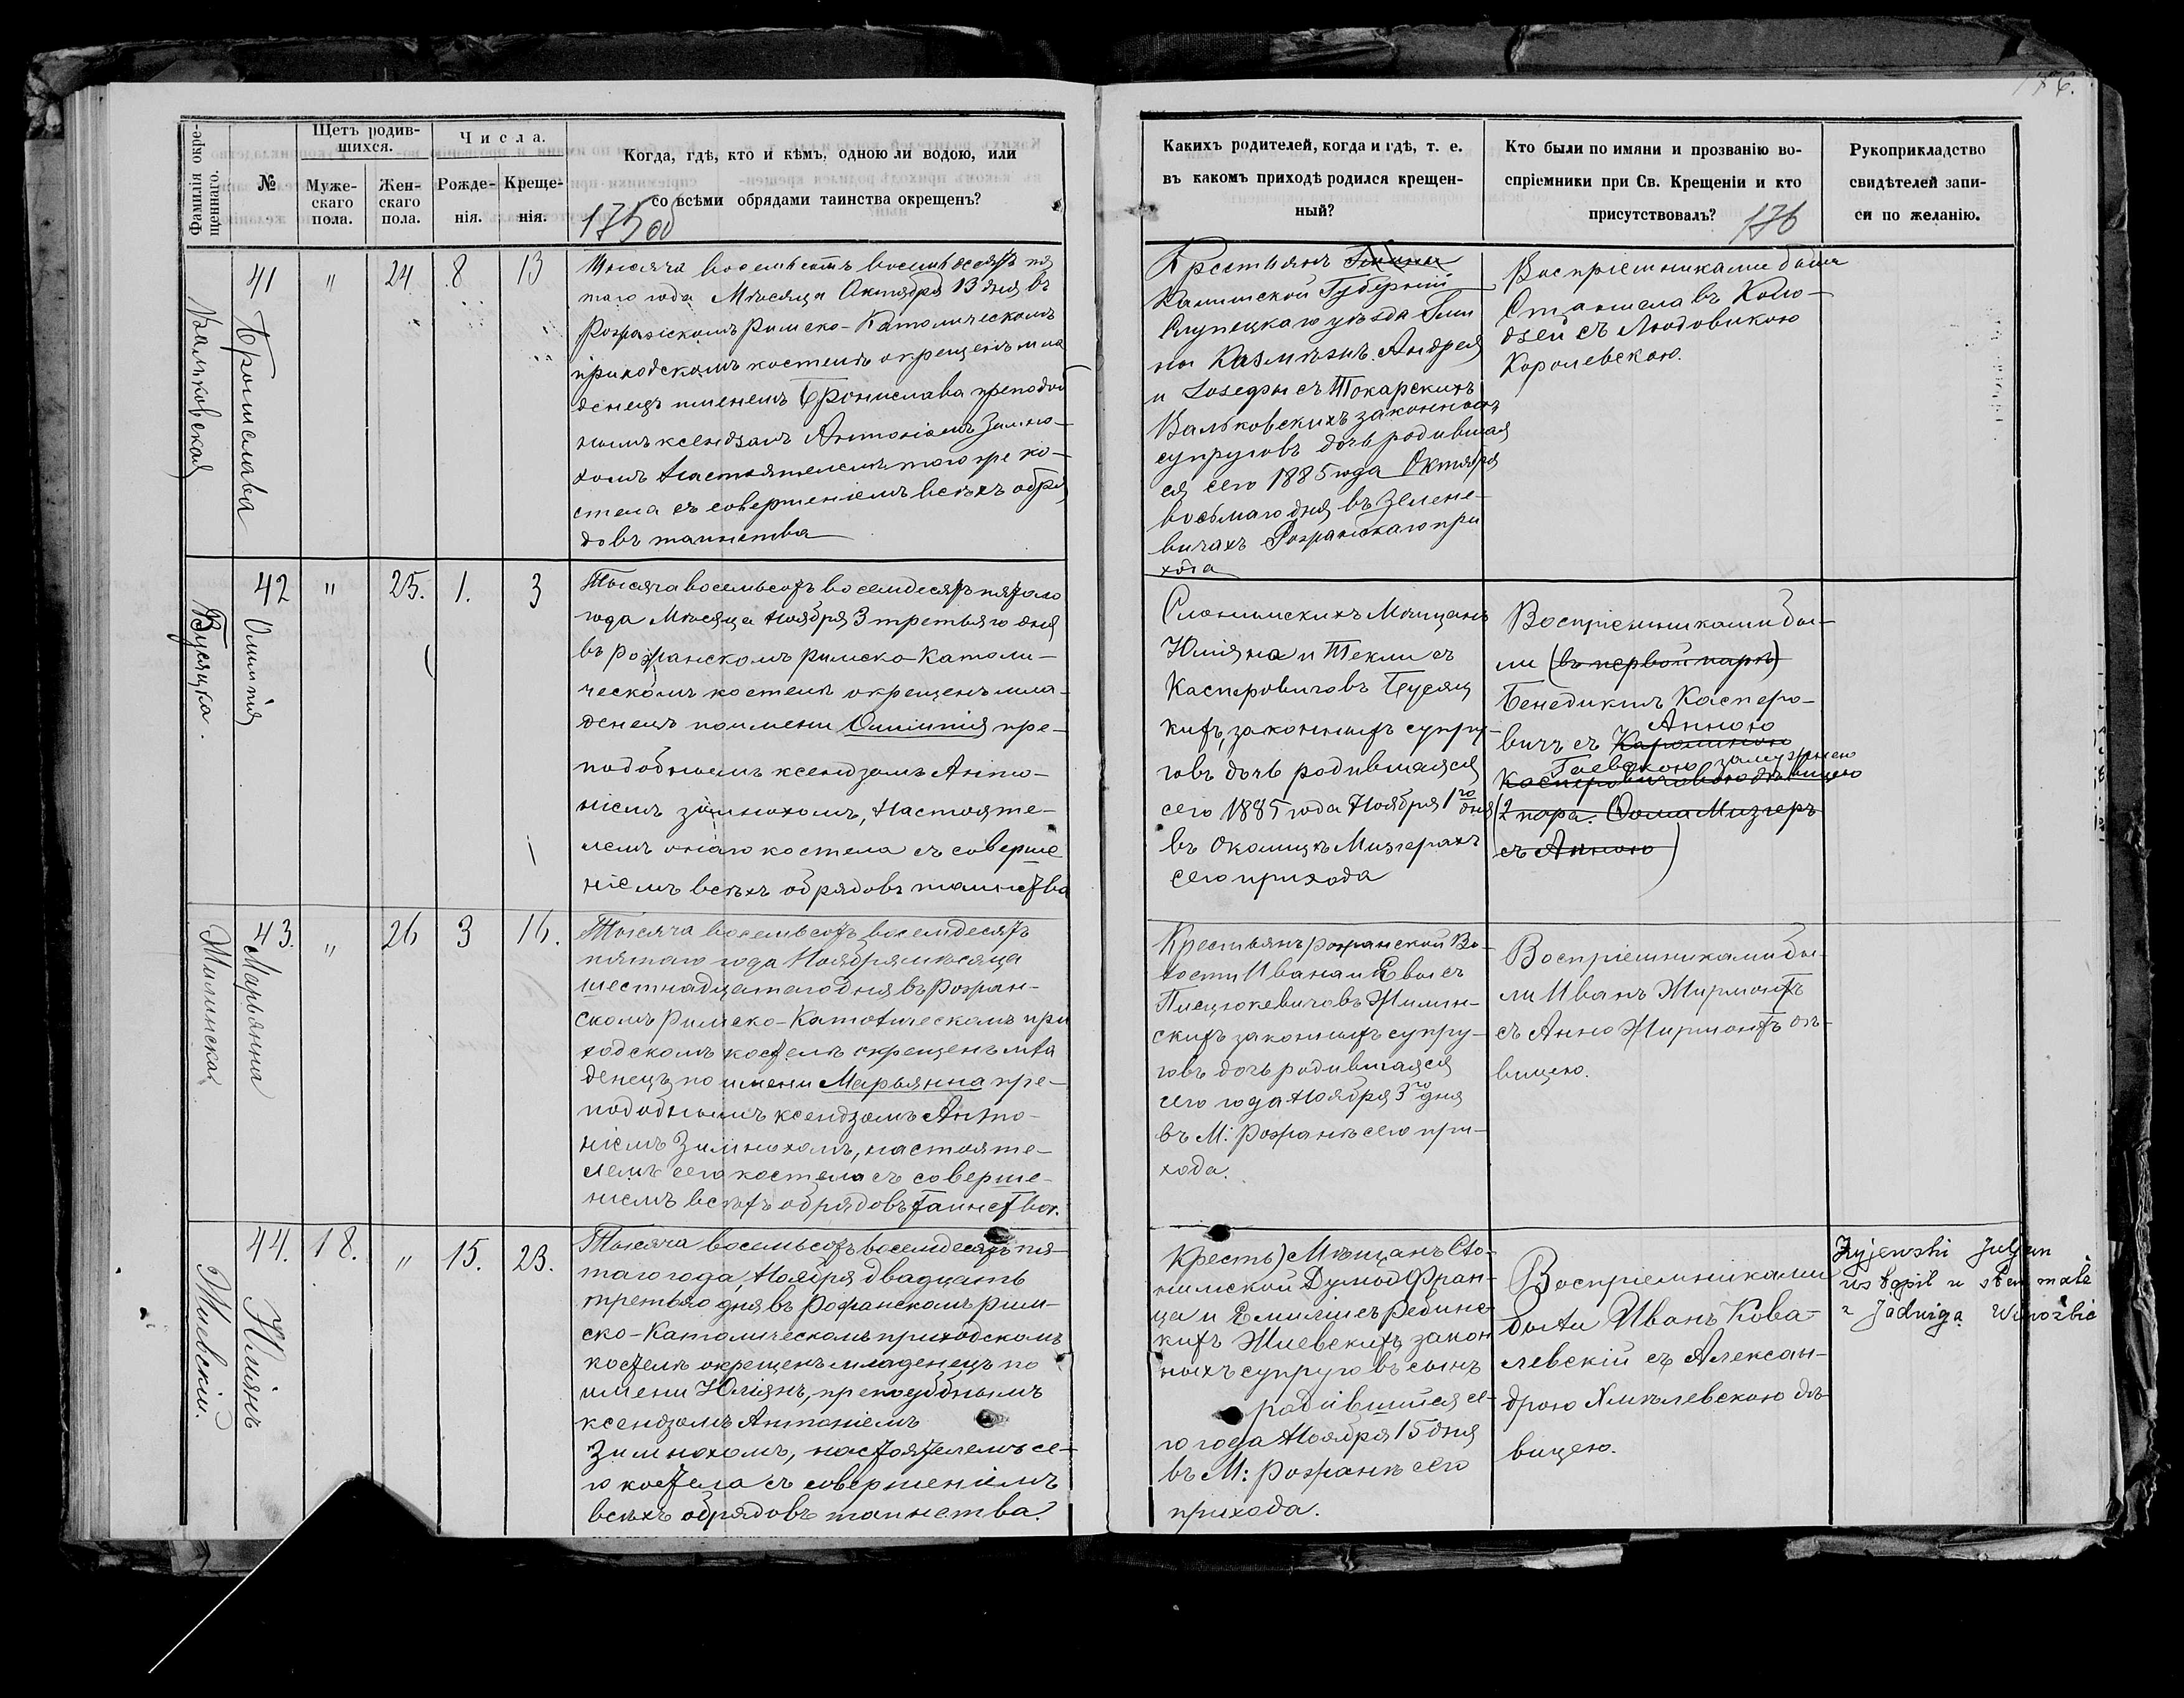 176.
Фамилія окре-
щеннаго.
№
Щетъ родив-
шихся.
Муже-
скаго
пола.
Жен-
скаго
пола.
Числа.
Рожде-
нія.
Креще-
нія.
Когда, гдѣ, кто и кѣмъ, одною ли водою, или
со всѣми обрядами таинства окрещенъ?
175 об
Вальковская
41
Бронислава
"
24
8
13
Тысяча восемьсотъ восемьдесятъ пя
таго года Мѣсяца Октября 13 дня въ
Рожанскомъ Римско-Католическомъ
приходскомъ костелѣ окрещенъ мла
денецъ именемъ Бронислава преподоб
нымъ ксендзомъ Антоніемъ Зимно-
хомъ Настоятелемъ того же ко-
стела съ совершеніемъ всѣхъ обря
довъ таинства
Бусяцка.
42
Олимпія
"
25.
1.
3
Тысяча восемьсотъ восемдесятъ пятого
года Мѣсяца Ноября 3 третьяго дня
въ Рожанскомъ римско-Католи-
ческомъ костелѣ окрещенъ мла-
денецъ по имени Олимпія пре-
подобнымъ ксендзомъ Анто-
ніемъ Зимнохомъ, Настояте-
лемъ онаго костела съ соверше
ніемъ всѣхъ обрядовъ таинства
Жилинская
43.
Марьянна
"
26
3
16.
Тысяча восемьсотъ восемдесятъ
пятаго года Ноября мѣсяца
шестнадцатаго дня въ Рожан-
скомъ Римско-Католическомъ при
ходскомъ костелѣ окрещенъ мла
денецъ по имени Марьянна пре-
подобнымъ ксендзомъ Анто-
ніемъ Зимнохомъ, настояте-
лемъ сего костела съ соверше-
ніемъ всѣхъ обрядовъ таинства.
Жиевскій.
44.
Юліянъ
18.
"
15.
23.
Тысяча восемьсотъ восемдесятъ пя-
таго года, Ноября двадцать
третьяго дня въ Рожанскомъ рим-
ско-Католическомъ приходскомъ
костелѣ окрещенъ младенецъ по
имени Юліянъ, преподобнымъ
ксендзомъ Антоніемъ
Зимнохомъ, настоятелемъ се-
го костела съ совершеніемъ
всѣхъ обрядовъ таинства.
Какихъ родителей, когда и гдѣ, т. е.
въ какомъ приходѣ родился крещен-
ный?
Кто были по имяни и прозванію во-
спріемники при Св. Крещеніи и кто
присутствовалъ?
176
Рукоприкладство
свидѣтелей запи-
си по желанію.
Крестьянъ
Калишской Губерніи
Слупецкаго уѣзда Гми
ны Казмѣжъ Андрея
и Іозефы съ Токарскихъ
Вальковскихъ законныхъ
супруговъ дочь родившая
ся сего 1885 года Октября
восьмаго дня въ Зелене-
вичахъ Рожанскаго при
хода
Воспріемниками были
Станиславъ Коло-
дзей съ Людовикою
Королевскою.
Слонимскихъ Мещанъ
Юліяна и Текли съ
Касперовичовъ Бусяц
кихъ, законныхъ супру-
говъ дочь родившаяся
сего 1885 года Ноября 1го дня
въ Околицѣ Мизгерахъ
сего прихода
Воспріемниками бы-
ли (въ первой парѣ)
Бенедиктъ Касперо-
Анною
вичъ съ Каролиною
Гаевскою замужнею
Касперовичовною дѣвицею
(2 пара. Фома Мизгеръ
съ Анною)
Крестьянъ рожанской Во-
лости Ивана и Евы съ
Пиецюкевичовъ Жилин-
скихъ законныхъ супру-
говъ дочь родившаяся
сего года Ноября 3го дня
въ М: Рожанѣ сего при-
хода.
Воспріемниками бы-
ли Иванъ Жирмонтъ
съ Анно Жирмонтъ дѣ-
вицею.
Кресть) Мѣщанъ Сло-
нимской Думы Фран-
ца и Емиліи съ Редлинс
кихъ Жиевскихъ закон
ныхъ супруговъ сынъ
родившійся се-
го года Ноября 15 дня
въ М: Рожанѣ сего
прихода.
Воспріемниками
были Иванъ Кова-
левскій съ Алексан-
дрою Хмѣлевскою дѣ-
вицею.
Żyjewski Juljan
wstąpił w stan małż
z Jadwigą